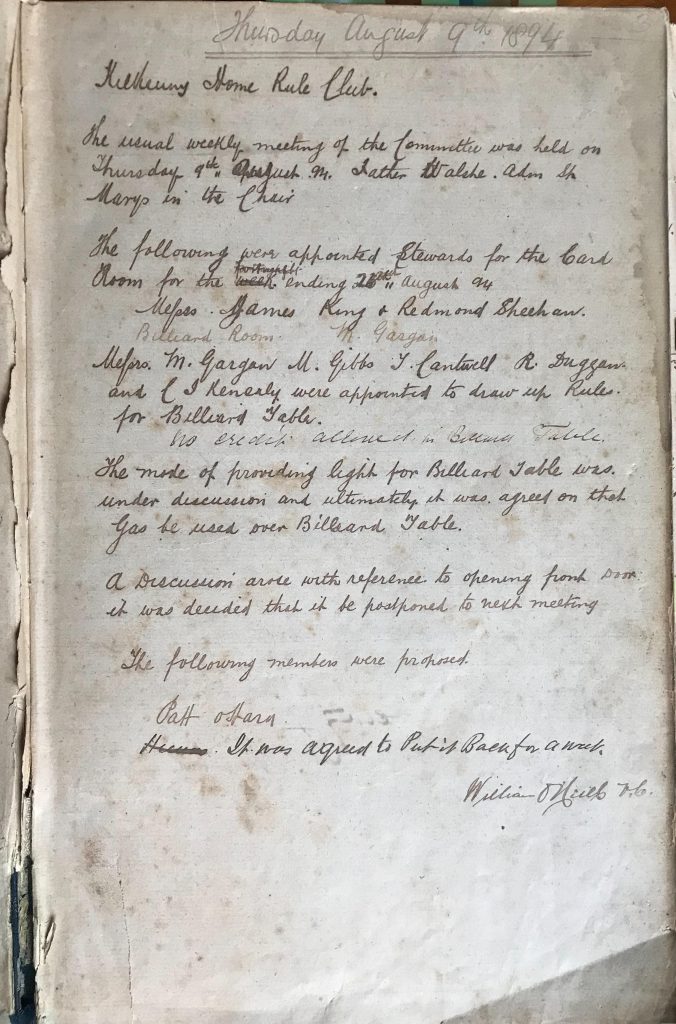 Thursday August 9th 1894
Kilkenny Home Rule Club.
The usual weekly meeting of the Committee was held on
Thursday 9th August. Father Walshe. Adm St
Marys in the Chair
The following were appointed Stewards for the Card
Room for the fortnight ending August 94
Messrs. James King & Redmond Sheehan.
Billiard Room. M. Gargan
Messrs. M. Gargan M. Gibbs T. Cantwell R. Duggan
and C J Kenealy were appointed to draw up Rules.
for Billiard Table.
No credit allowed in Billiard Table.
The mode of providing light for Billiard Table was
under discussion and ultimately it was agreed on that
Gas be used over Billiard Table.
A Discussion arose with reference to opening front Door
it was decided that it be postponed to next meeting
The following members were proposed.
Patt oHara
It was agreed to Put it Back for a week.
William O'Neill